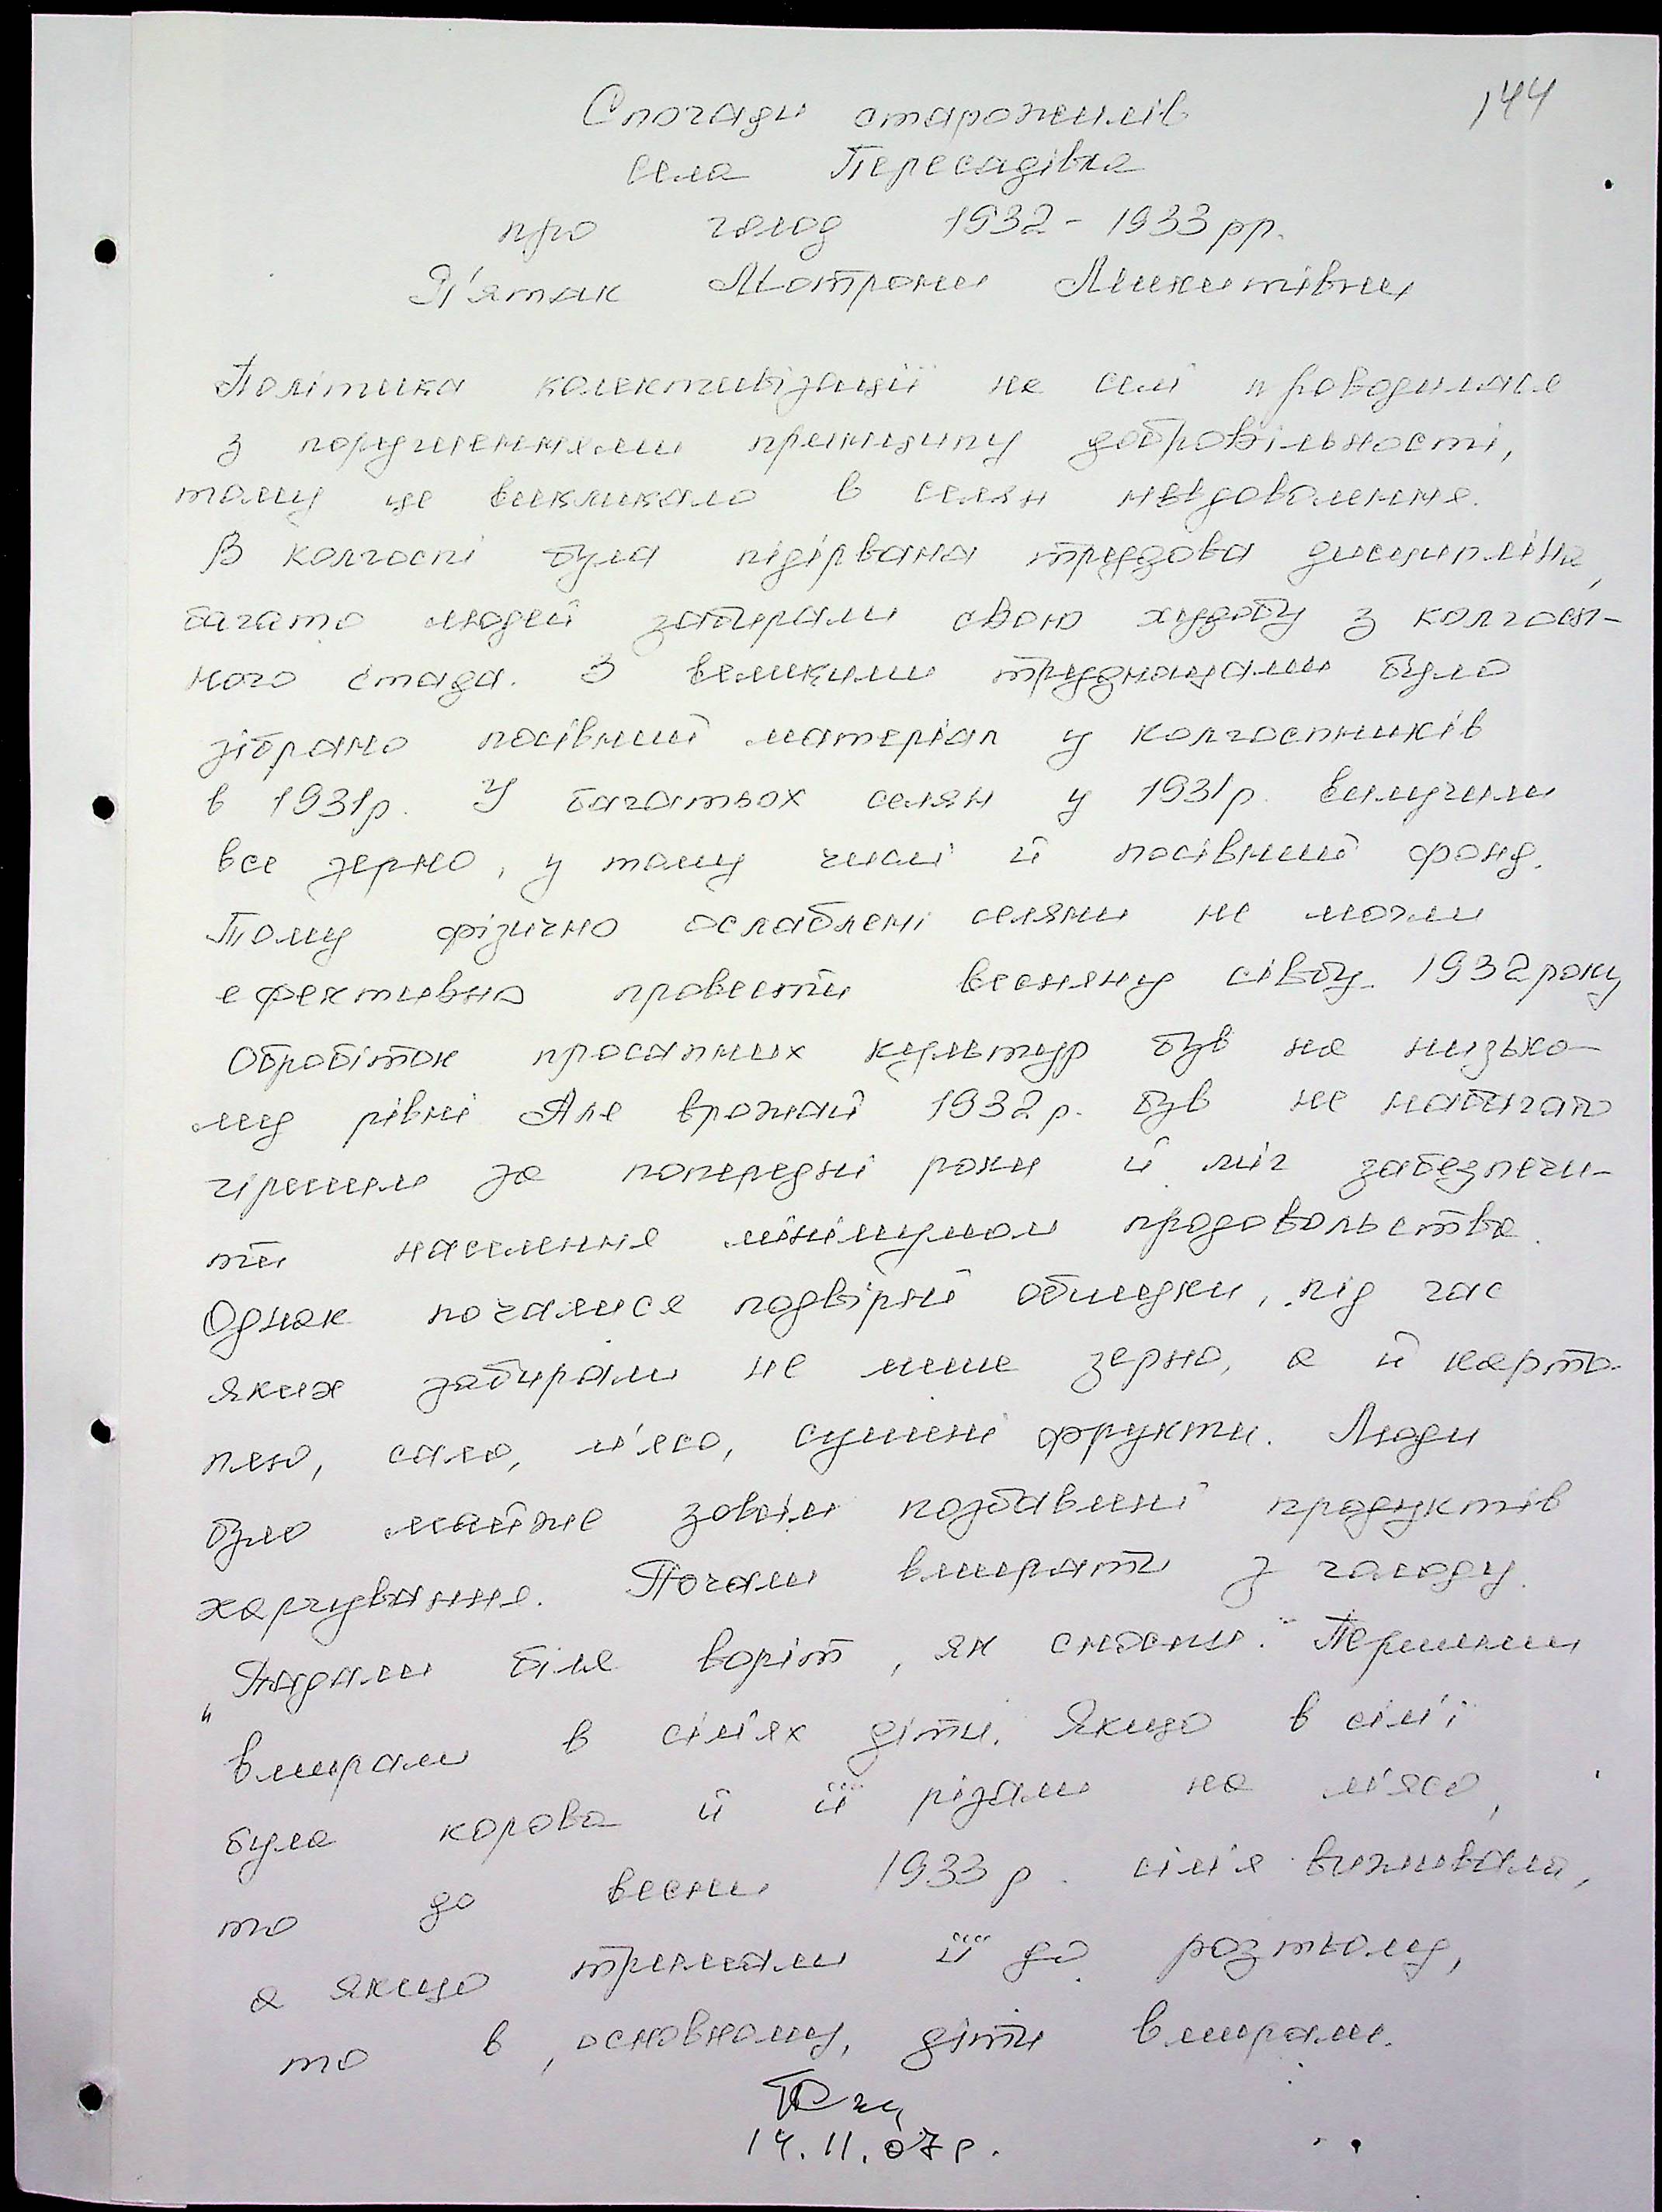 144
Спогади старожилів
села Пересадівка
про голод 1932-1933 рр.
П'ятак Мотрони Микитівни
Політика колективізації на селі проводилася
з порушеннями принципу добровільності,
тому це викликало в селян невдоволення.
В колгоспі була підірвана трудова дисципліна,
багато людей забирали свою худобу з колгосп-
ного стада. З великими труднощами було
зібрано посівний матеріал у колгоспників
в 1931р. У багатьох селян у 1931р. вилучили
все зерно, у тому числі й посівний фонд.
Тому фізично ослаблені селяни не могли
ефективно провести весняну сівбу 1932 року
Обробіток просапних культур був на низько-
му рівні Але врожай 1932 р. був не набагато
гіршим за попередні роки й міг забезпечи-
ти населення мінімумом продовольства.
Однак почалися подвірні обшуки, під час
яких забирали не лише зерно, а й карто-
плю, сало, м'ясо, сушені фрукти. Люди
було майже зовсім позбавлені продуктів
харчування. Почали вмирати з голоду.
"Падали біля воріт, як снопи." Першими
вмирали в сім'ях діти. Якщо в сім'ї
була корова й її різали на м'ясо,
то до весни 1933 р. сім'я виживала,
а якщо тримали її до розтьолу,
то в, основному, діти вмирали.
14.11.07р.